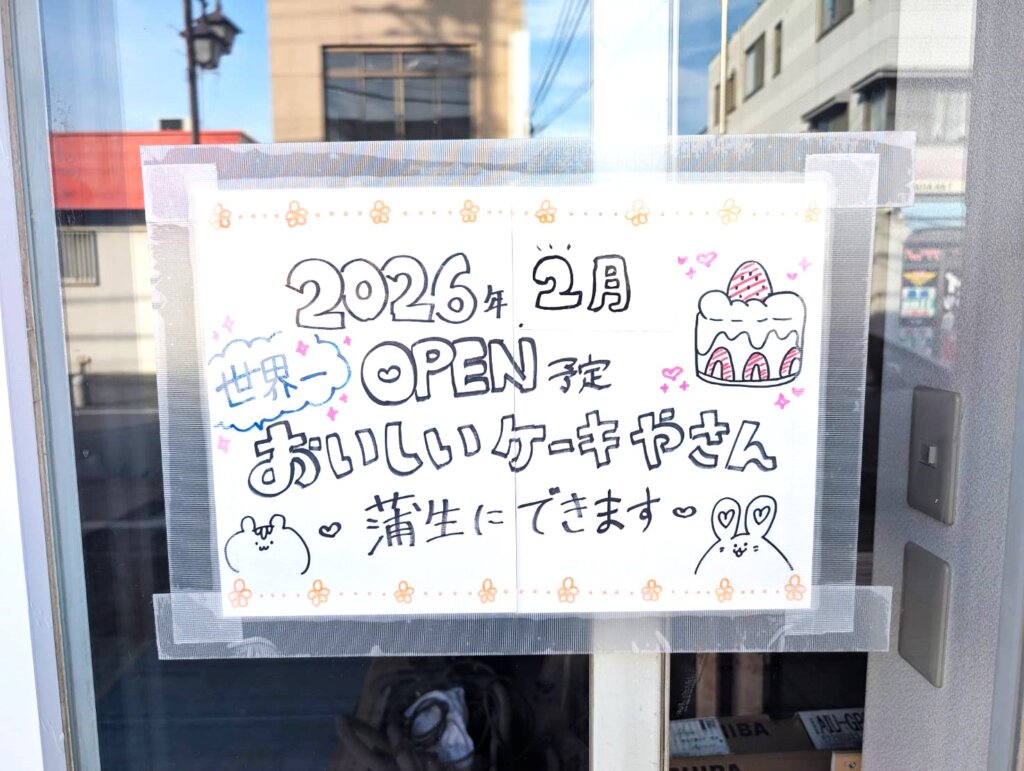 2026年 2月
OPEN予定
世界一
おいしいケーキやさん
蒲生にできます